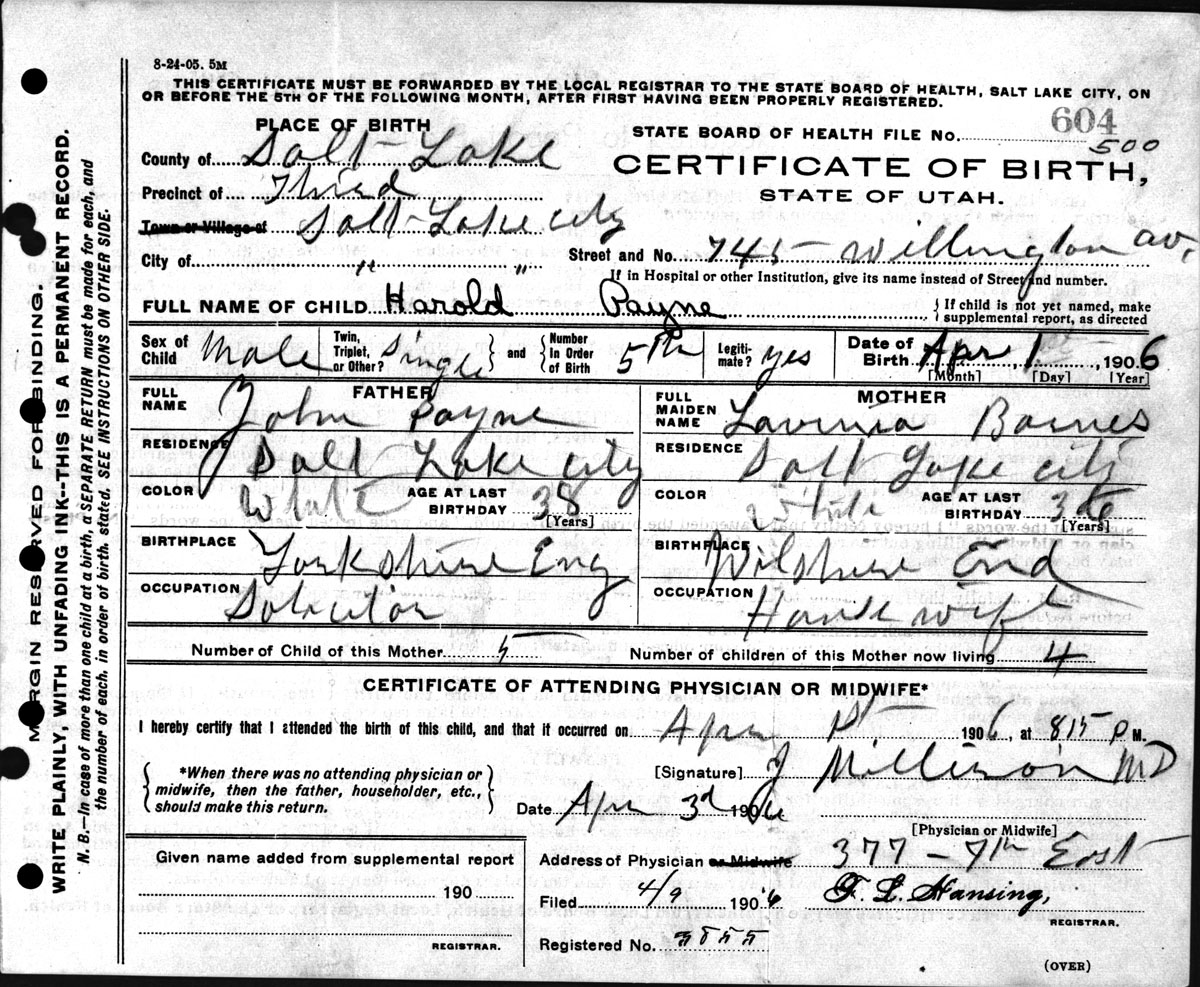 8-24-05. 5M
THIS CERTIFICATE MUST BE FORWARDED BY THE LOCAL REGISTRAR TO THE STATE BOARD OF HEALTH, SALT LAKE CITY, ON
OR BEFORE THE 5TH OF THE FOLLOWING MONTH, AFTER FIRST HAVING BEEN PROPERLY REGISTERED.
PLACE OF BIRTH
STATE BOARD OF HEALTH FILE No. 604
500
County of Salt Lake
CERTIFICATE OF BIRTH,
Precinct of Third
STATE OF UTAH.
Town or Village of Salt Lake city
City of " " Street and No. 745 Willington av.
If in Hospital or other Institution, give its name instead of Street and number.
FULL NAME OF CHILD Harold Payne { If child is not yet named, make supplemental report, as directed
Sex of Child Male Twin, Triplet, or Other? Single and Number In Order of Birth 5th Legitimate? yes Date of Birth Apr 1, 1906
[Month] [Day] [Year]
FATHER MOTHER
FULL NAME John Payne FULL MAIDEN NAME Lavinia Barnes
RESIDENCE Salt Lake city RESIDENCE Salt Lake citi
COLOR White AGE AT LAST BIRTHDAY 38 [Years] COLOR White AGE AT LAST BIRTHDAY 36 [Years]
BIRTHPLACE Yorkshire Eng BIRTHPLACE Wilshire End
OCCUPATION Solicitor OCCUPATION House wife
Number of Child of this Mother 5 Number of children of this Mother now living 4
CERTIFICATE OF ATTENDING PHYSICIAN OR MIDWIFE*
I hereby certify that I attended the birth of this child, and that it occurred on Apr 1st 1906, at 815 P M.
{ *When there was no attending physician or midwife, then the father, householder, etc., should make this return. }
[Signature] J Millison MD
Date Apr 3d 1906
[Physician or Midwife]
Given name added from supplemental report
190
REGISTRAR.
Address of Physician or Midwife 377 - 7th East
Filed 4/9 1906 F. L. Hansing,
REGISTRAR.
Registered No. 3855
(OVER)
MARGIN RESERVED FOR BINDING.
WRITE PLAINLY, WITH UNFADING INK--THIS IS A PERMANENT RECORD.
N. B.—In case of more than one child at a birth, a SEPARATE RETURN must be made for each, and
the number of each, in order of birth, stated. SEE INSTRUCTIONS ON OTHER SIDE.